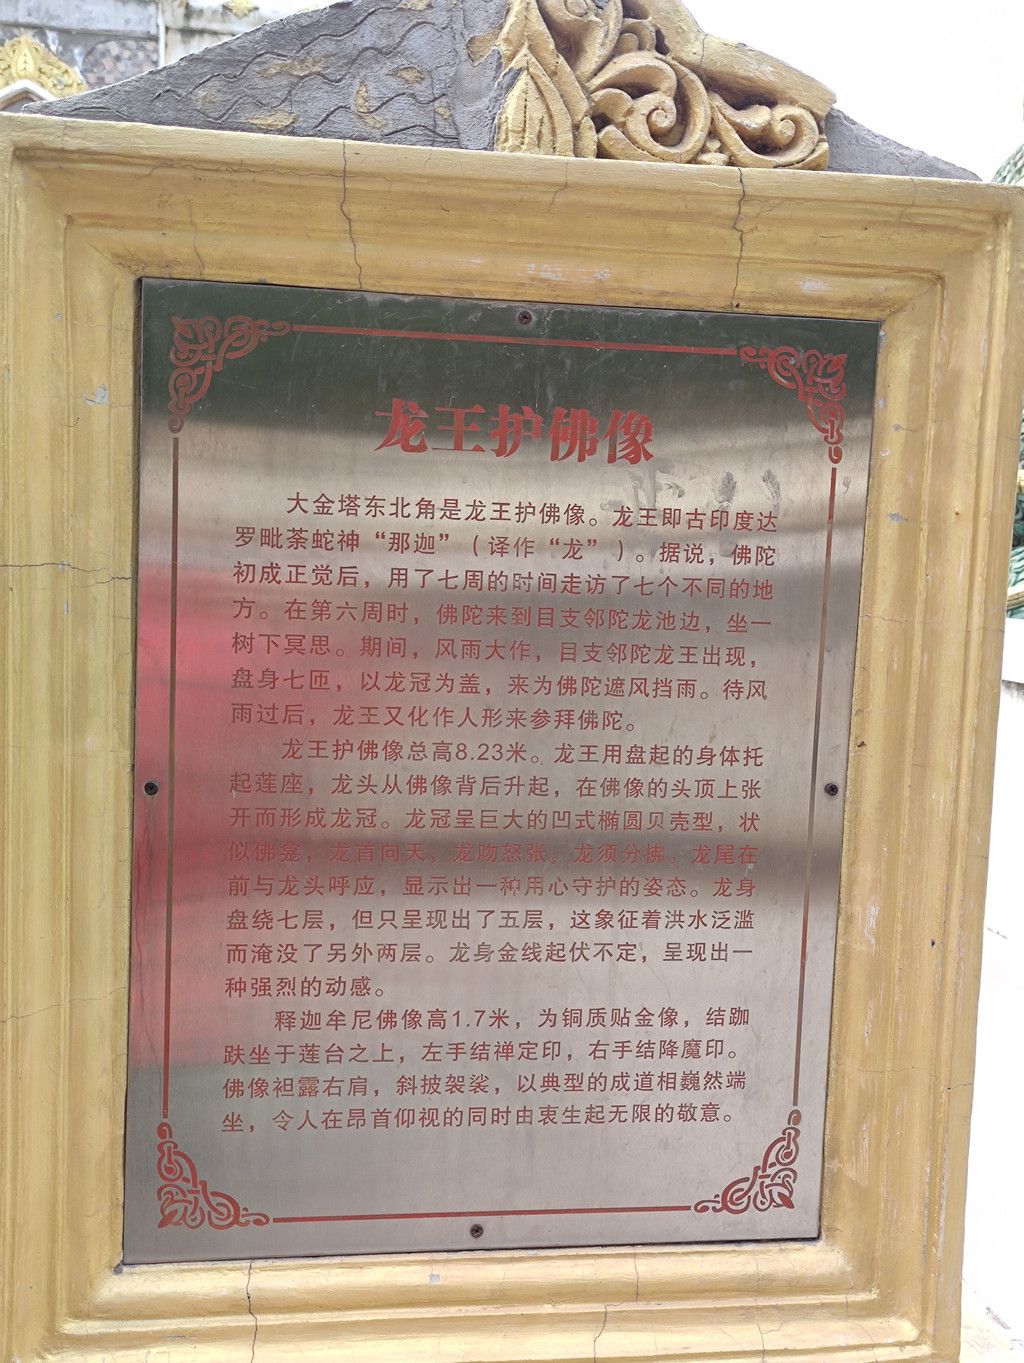 龙王护佛像
大金塔东北角是龙王护佛像。龙王即古印度达
罗毗荼蛇神“那迦”（译作“龙”）。据说，佛陀
初成正觉后，用了七周的时间走访了七个不同的地
方。在第六周时，佛陀来到目支邻陀龙池边，坐一
树下冥思。期间，风雨大作，目支邻陀龙王出现，
盘身七匝，以龙冠为盖，来为佛陀遮风挡雨。待风
雨过后，龙王又化作人形来参拜佛陀。
龙王护佛像总高8.23米。龙王用盘起的身体托
起莲座，龙头从佛像背后升起，在佛像的头顶上张
开而形成龙冠。龙冠呈巨大的凹式椭圆贝壳型，状
似佛龛，龙首向天，龙吻怒张，龙须分拂。龙尾在
前与龙头呼应，显示出一种用心守护的姿态。龙身
盘绕七层，但只呈现出了五层，这象征着洪水泛滥
而淹没了另外两层。龙身金线起伏不定，呈现出一
种强烈的动感。
释迦牟尼佛像高1.7米，为铜质贴金像，结跏
趺坐于莲台之上，左手结禅定印，右手结降魔印。
佛像袒露右肩，斜披袈裟，以典型的成道相巍然端
坐，令人在昂首仰视的同时由衷生起无限的敬意。